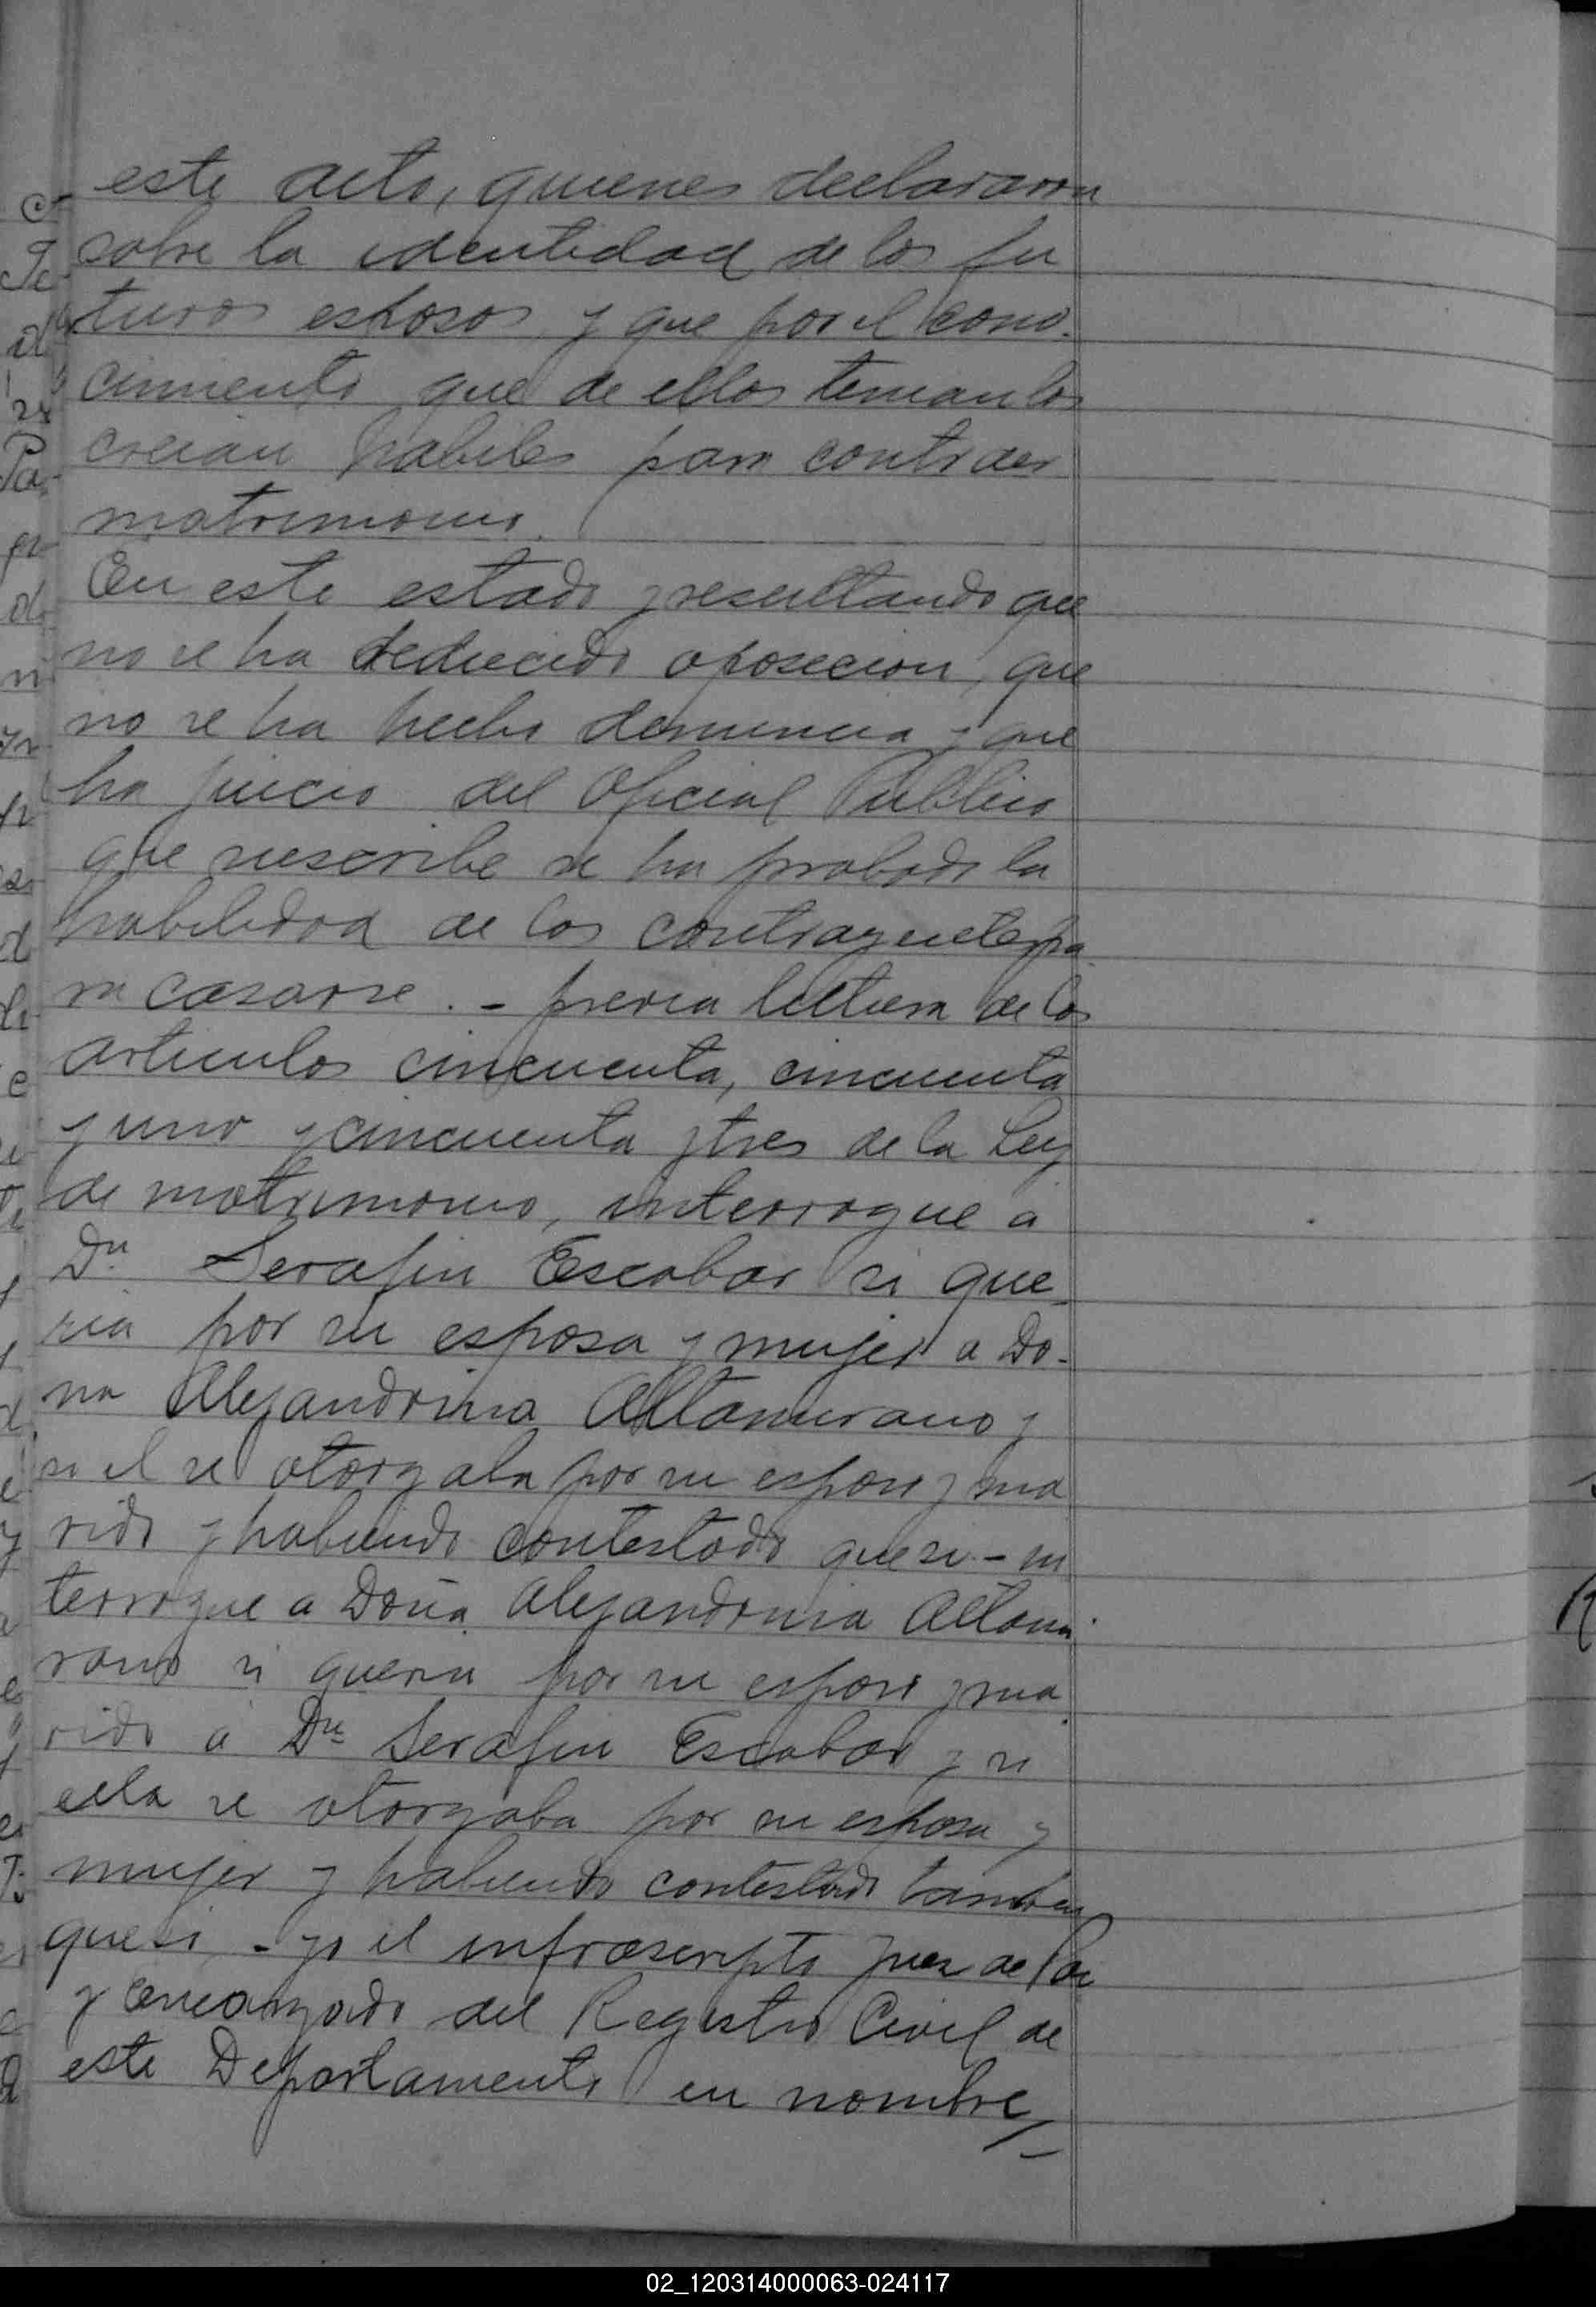 este acto, quienes declararon
sobre la identidad de los fu
turos esposos y que por el cono-
cimiento que de ellos tenian los
creian habiles para contraer
matrimonio.
En este estado y resultando que
no se ha deducido oposicion, que
no se ha hecho denuncia y que
ha juicio del Oficial Publico
que suscribe se ha probado la
habilidad de los contrayentes pa
ra casarse. - previa lectura de los
articulos cincuenta, cincuenta
y uno y cincuenta y tres de la Ley
de matrimonio, interrogue a
Dn Serafin Escobar si que-
ria por su esposa y mujer a Do-
na Alejandrina Altamirano y
si el se otorgaba por su esposo y ma
rido y habiendo contestado que si - in
terrogue a Doña Alejandrina Altami
rano si queria por su esposo y ma
rido a Dn Serafin Escobar y si
ella se otorgaba por su esposa y
mujer y habiendo contestado tambien
que si - yo el infrascripto Juez de Paz
y encargado del Registro Civil de
este Departamento en nombre
02_120314000063-024117